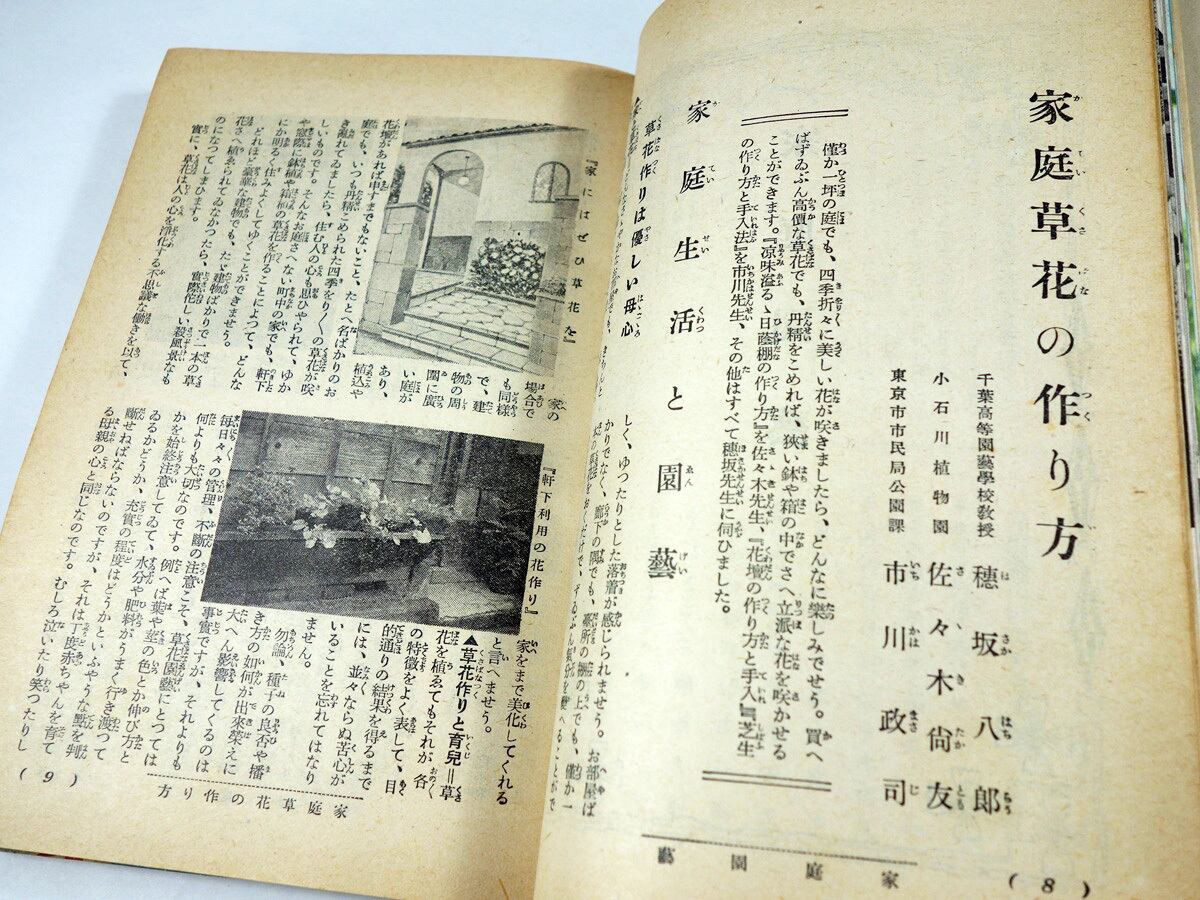 家庭草花の作り方
千葉高等園藝學校教授 穂坂八郎
小石川植物園 佐々木尙友
東京市市民局公園課 市川政司
僅か一坪の庭でも、四季折々に美しい花が咲きましたら、どんなに樂しみでせう。買へ
ばずゐぶん高價な草花でも、丹精をこめれば、狹い鉢や箱の中でさへ立派な花を咲かせる
ことができます。『凉味溢るゝ日蔭棚の作り方』を佐々木先生、『花壇の作り方と手入』『芝生
の作り方と手入法』を市川先生、その他はすべて穂坂先生に伺ひました。
家庭生活と園藝
草花作りは優しい母心
しく、ゆつたりとした落着が感じられませう。お部屋ば
かりでなく、廊下の隅でも、臺所の棚の上でも、僅か一
家庭園藝
(8)
『家にはぜひ草花を』
花壇があれば申すまでもないこと、たとへ名ばかりのお
庭でも、いつも丹精こめられた四季をり〱の草花が咲
き溢れてゐましたら、住む人の心も思ひやられて、ゆか
しいものです。そんなお庭さへない町中の家でも、軒下
や窓際に鉢植や箱植の草花を作ることによつて、どんな
にか明るく住みよくしてゆくことができませう。
どれほど豪華な建物でも、たゞ建物ばかりで一本の草
花さへ植ゑられてゐなかつたら、實際佗しい殺風景なも
のになつてしまひます。
實に、草花は人の心を淨化する不思議な働きを以て、
家の
場合で
も同樣
で、建
物の周
圍に廣
い庭が
あり、
植込や
『軒下利用の花作り』
家をまで美化してくれる
と言へませう。
▲草花作りと育兒＝草
花を植ゑてもそれが各〻
の特徴をよく表して、目
的通りの結果を得るまで
には、並々ならぬ苦心が
いることを忘れてはなり
ません。
勿論、種子の良否や播
き方の如何が出來榮えに
大へん影響してくるのは
事實ですが、それよりも
毎日々々の管理、不斷の注意こそ、草花園藝にとつては
何よりも大切なのです。例へば葉や莖の色とか伸び方と
かを始終注意してゐて、水分や肥料がうまく行き渡つて
ゐるかどうか、充實の程度はどうかといふやうな點を判
斷せねばならないのですが、それは丁度赤ちやんを育て
る母親の心と同じなのです。むしろ泣いたり笑つたりし
家庭草花の作り方
(9)